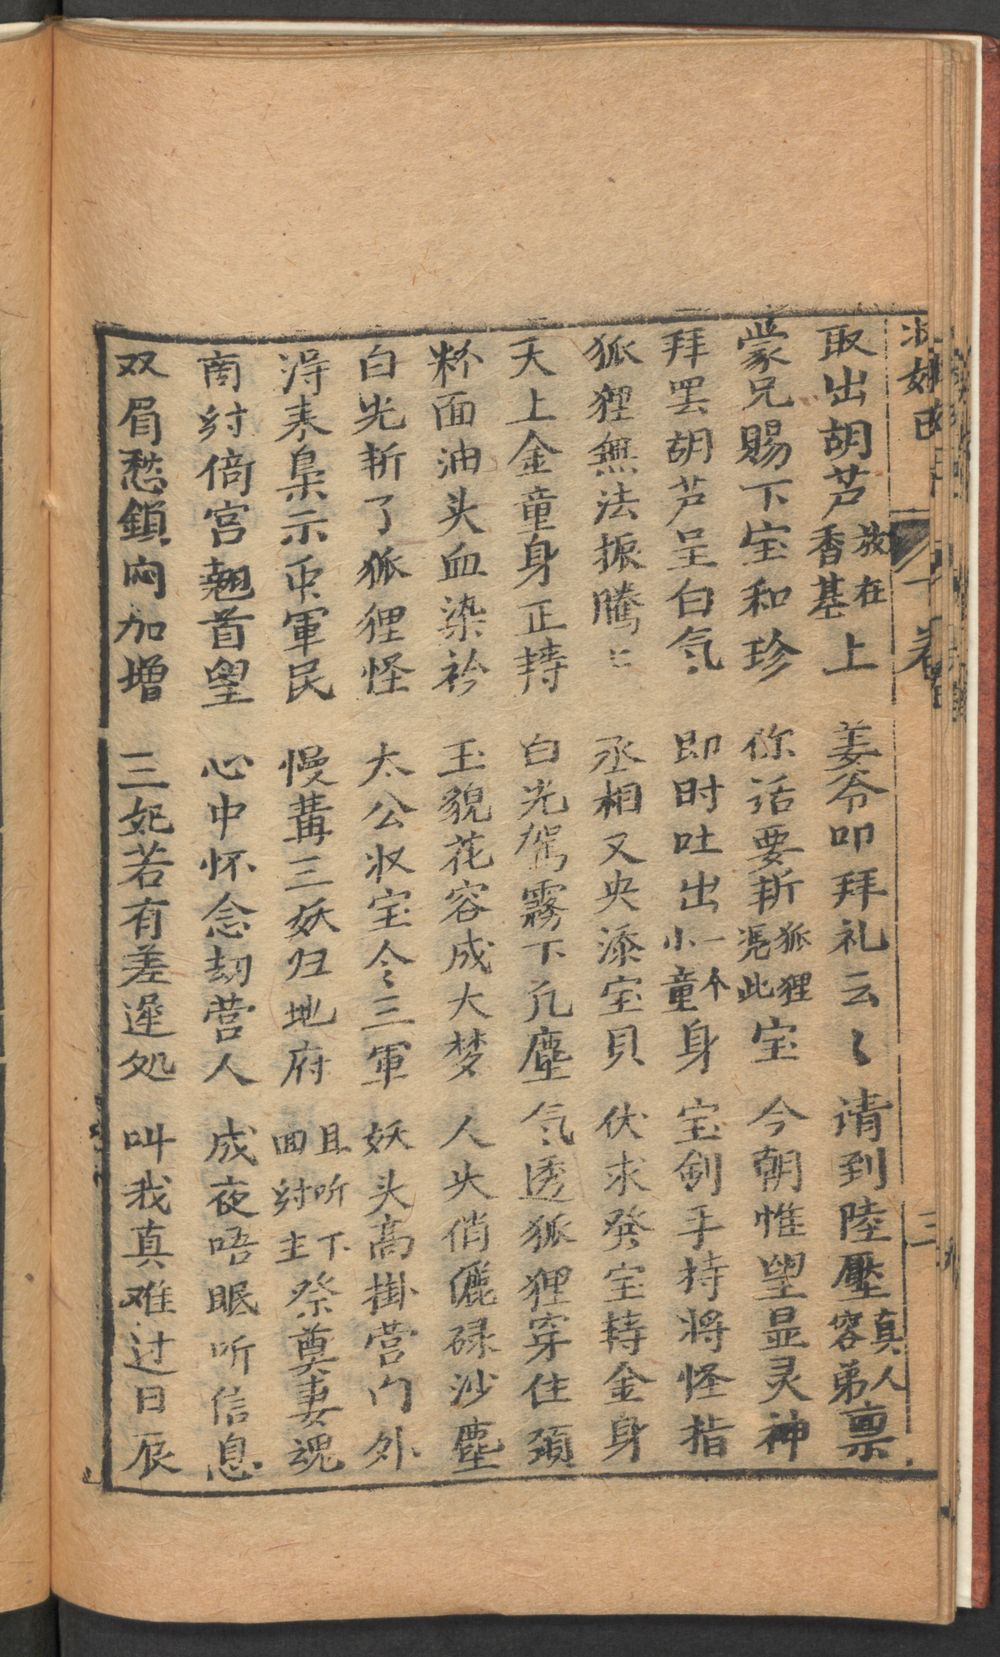 收妲己 十卷 三
取出胡芦放在香基上 姜爷叩拜礼云〻 请到陸壓真人容弟禀
蒙兄賜下宝和珍 你话要斩狐狸凭此宝 今朝惟望显灵神
拜罢胡芦呈白気 即时吐出一个小童身 宝剑手持将怪指
狐狸無法振騰〻 丞相又央添宝貝 伏求發宝转金身
天上金童身正转 白光驾霧下凡塵 気透狐狸穿住頚
粉面油头血染衿 玉貌花容成大梦 人失俏儷碌沙塵
白光斩了狐狸怪 太公收宝令三軍 妖头高掛营门外
淂来梟示衆軍民 慢講三妖归地府 且听下回紂主祭奠妻魂
商紂倚宫翹首望 心中怀念刼营人 成夜唔眠听信息
双眉愁鎖闷加增 三妃若有差遲处 叫我真难过日辰